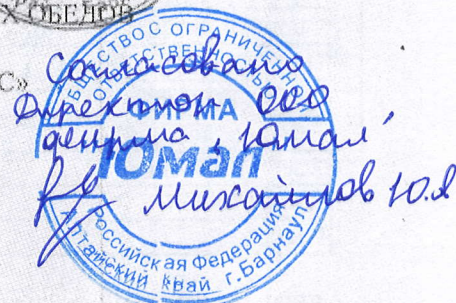 Х ОБЕДОВ
С»
Согласовано
Директор ООО
фирма "Юмал"
Михайлов Ю.А
ОБЩЕСТВО С ОГРАНИЧЕННОЙ
ОТВЕТСТВЕННОСТЬЮ
ФИРМА
Юмал
Российская Федерация
Алтайский край г.Барнаул